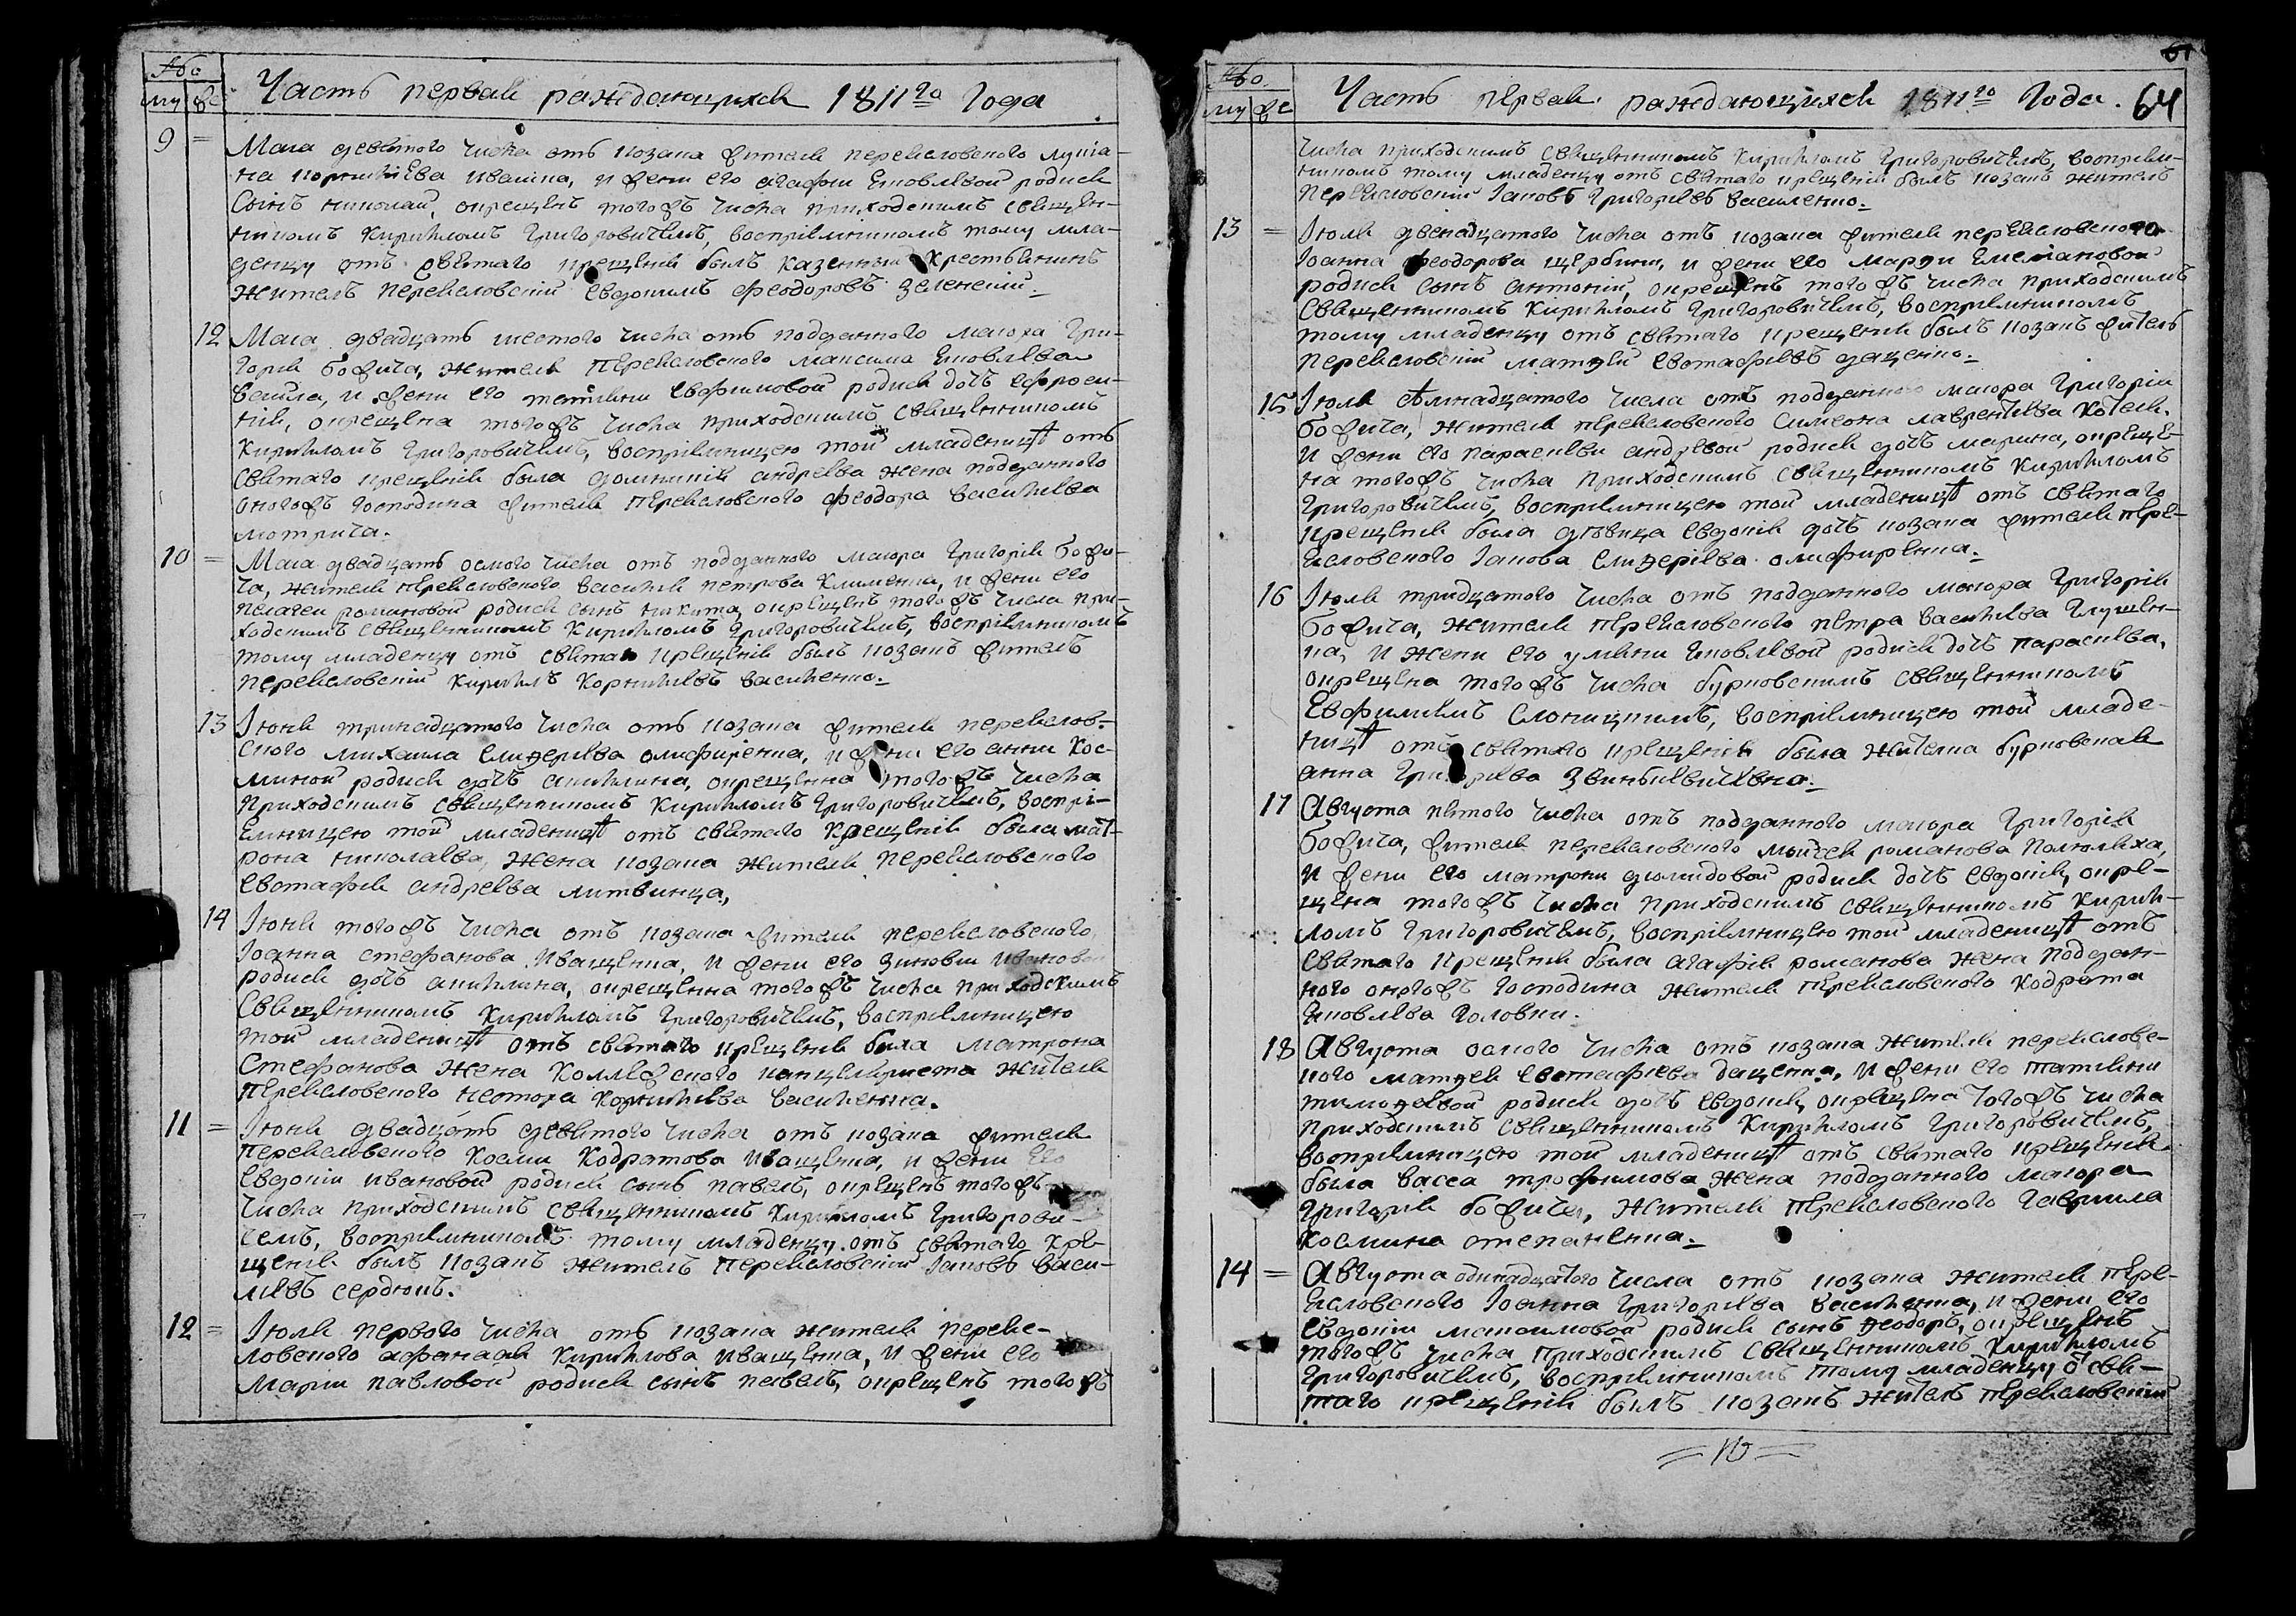 Часть первая раждающихся 1811го Года
му же
9 = Маіа девятого числа отъ козака жителя переясловского лукіа-
на корниліева ивашка, и жени его агафіи яковлевой родися
Сынъ николай, окрещенъ тогожъ числа приходскимъ священ-
никомъ Кирилломъ Григоровичемъ, воспріемникомъ тому мла-
денцу отъ святаго крещенія былъ казенный Крестьянинъ
житель переясловскій евдокимъ феодоровъ зеленскій.
12 Маіа двадцять шестого числа отъ подданного маіора Гри-
горія божича, жителя переясловского максима яковлева
вакула, и жени его татіяни евфимовой родися дочь ефроси-
нія, окрещена тогожъ числа приходскимъ священникомъ
Кирилломъ Григоровичемъ, воспріемницею той младеницѣ отъ
святаго крещенія была домникія андреева жена подданного
оногожъ господина жителя переясловского феодора василіева
мотрича.
10 = Маіа двадцять осмого числа отъ подданного маіора Григорія божи-
ча, жителя переясловского василія петрова клименка, и жени его
пелагеи романовой родися сынъ никита, окрещенъ тогожъ числа при-
ходскимъ священникомъ Кирилломъ Григоровичемъ, воспріемникомъ
тому младенцу отъ святаго крещенія былъ козакъ житель
переясловскій Кириллъ Корниліевъ василенко.
13 Іюня тринадцатого числа отъ козака жителя переяслов-
ского михаила елиѳеріева олифиренка, и жени его анни Кос-
миной родися дочь акилина, окрещенна тогожъ числа
Приходскимъ священникомъ Кирилломъ Григоровичемъ, воспрі-
емницею той младеницѣ отъ святаго крещенія была мат-
рона николаева, жена козака жителя переясловского
евстафія андреева литвинца,
14 Іюня тогожъ числа отъ козака жителя переясловского
Іоанна стефанова иващенка, и жени его зиновіи ивановой
родися дочь акилина, окрещенна тогожъ числа приходскимъ
Священникомъ Кирилломъ Григоровичемъ, воспріемницею
той младеницѣ отъ святаго крещенія была матрона
Стефанова жена Коллежского канцеляриста жителя
переясловского нестора Корниліева василенка.
11 = Іюня двадцять девятого числа отъ козака жителя
переясловского Косми Кодратова иващенка, и жени его
евдокіи ивановой родися сынъ павелъ, окрещенъ тогожъ
Числа приходскимъ священникомъ Кирилломъ Григорови-
чемъ, воспріемникомъ тому младенцу отъ святаго кре-
щенія былъ козакъ житель переясловскій Іаковъ васи-
ліевъ сердюкъ.
12 = Іюля первого числа отъ козака жителя перея-
словского афанасія Кириллова иващенка, и жени его
Маріи павловой родися сынъ павелъ, окрещенъ тогожъ
Часть первая раждающихся 1811го Года. 64
му же
числа приходскимъ священникомъ Кирилломъ Григоровичемъ, воспріем-
никомъ тому младенцу отъ святаго крещенія былъ козакъ житель
переясловскій Іаковъ Григоріевъ василенко.
13 = Іюля дванадцатого числа отъ козака жителя переясловского
Іоанна феодорова щербини, и жени его марѳи емеліановой
родися сынъ антоній, окрещенъ тогожъ числа приходскимъ
Священникомъ Кирилломъ Григоровичемъ, воспріемникомъ
тому младенцу отъ святаго крещенія былъ козакъ житель
переясловскій матѳей евстафіевъ даценко.
15 Іюля семнадцатого числа отъ подданного маіора Григорія
божича, жителя переясловского симеона лаврентіева Котеля
и жени его параскеви андреевой родися дочь марина, окреще-
на тогожъ числа приходскимъ священникомъ Кирилломъ
Григоровичемъ, воспріемницею той младеницѣ отъ святаго
крещенія была дѣвица евдокія дочь козака жителя пере-
ясловского Іакова елиѳеріева олифиренка.
16 Іюля тридцатого числа отъ подданного маіора Григорія
божича, жителя переясловского петра василіева Глущен-
ка, и жени его уліяни яковлевой родися дочь параскева,
окрещена тогожъ числа бурковскимъ священникомъ
Евфиміемъ Слоницкимъ, воспріемницею той младе-
ницѣ отъ святаго крещенія была жителка бурковская
анна Григоріева
17 Августа пятого числа отъ подданного маіора Григорія
божича, жителя переясловского моисея романова
и жени его матрони діомидовой родися дочь евдокія, окре-
щена тогожъ числа приходскимъ священникомъ Кирил-
ломъ Григоровичемъ, воспріемницею той младеницѣ отъ
святаго крещенія была агафія романова жена поддан-
ного оногожъ господина жителя переясловского Кодрата
яковлева головки.
18 Августа осмого числа отъ козака жителя переяслове-
кого матѳея евстафіева даценка, и жени его татіяни
тимоѳеевой родися дочь евдокія, окрещена тогожъ числа
приходскимъ священникомъ Кирилломъ Григоровичемъ,
воспріемницею той младеницѣ отъ святаго крещенія
была васса трофимова жена подданного маіора
Григорія божича, жителя переясловского гавриила
космина степаненка.
14 = Августа одинадцатого числа отъ козака жителя пере-
ясловского Іоанна Григоріева василенка, и жени его
евдокіи максимовой родися сынъ ѳеодоръ, окрещенъ
тогожъ числа приходскимъ священникомъ Кирилломъ
Григоровичемъ, воспріемникомъ тому младенцу о свя-
таго крещенія былъ козакъ житель переясловскій